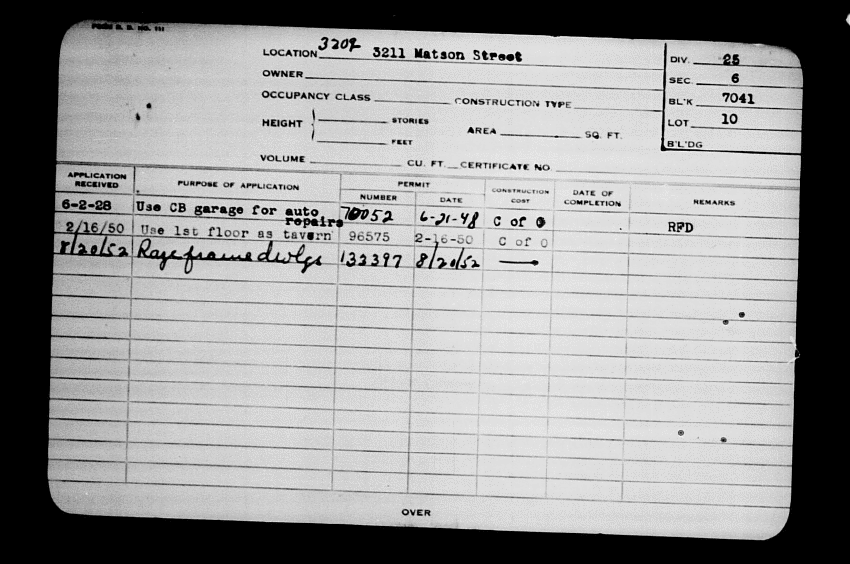 FORM B. B. NO. 111
LOCATION 3209 3211 Matson Street
OWNER
OCCUPANCY CLASS CONSTRUCTION TYPE
HEIGHT STORIES
FEET
AREA SQ. FT.
VOLUME CU. FT. CERTIFICATE NO.
DIV. 25
SEC. 6
BL'K 7041
LOT 10
B'L'DG
APPLICATION RECEIVED PURPOSE OF APPLICATION PERMIT NUMBER DATE CONSTRUCTION COST DATE OF COMPLETION REMARKS
6-2-28 Use CB garage for auto repairs 70052 6-21-48 C of O RFD
2/16/50 Use 1st floor as tavern 96575 2-16-50 C of O
8/20/52 Raze frame dwlgs 132397 8/20/52 —
OVER